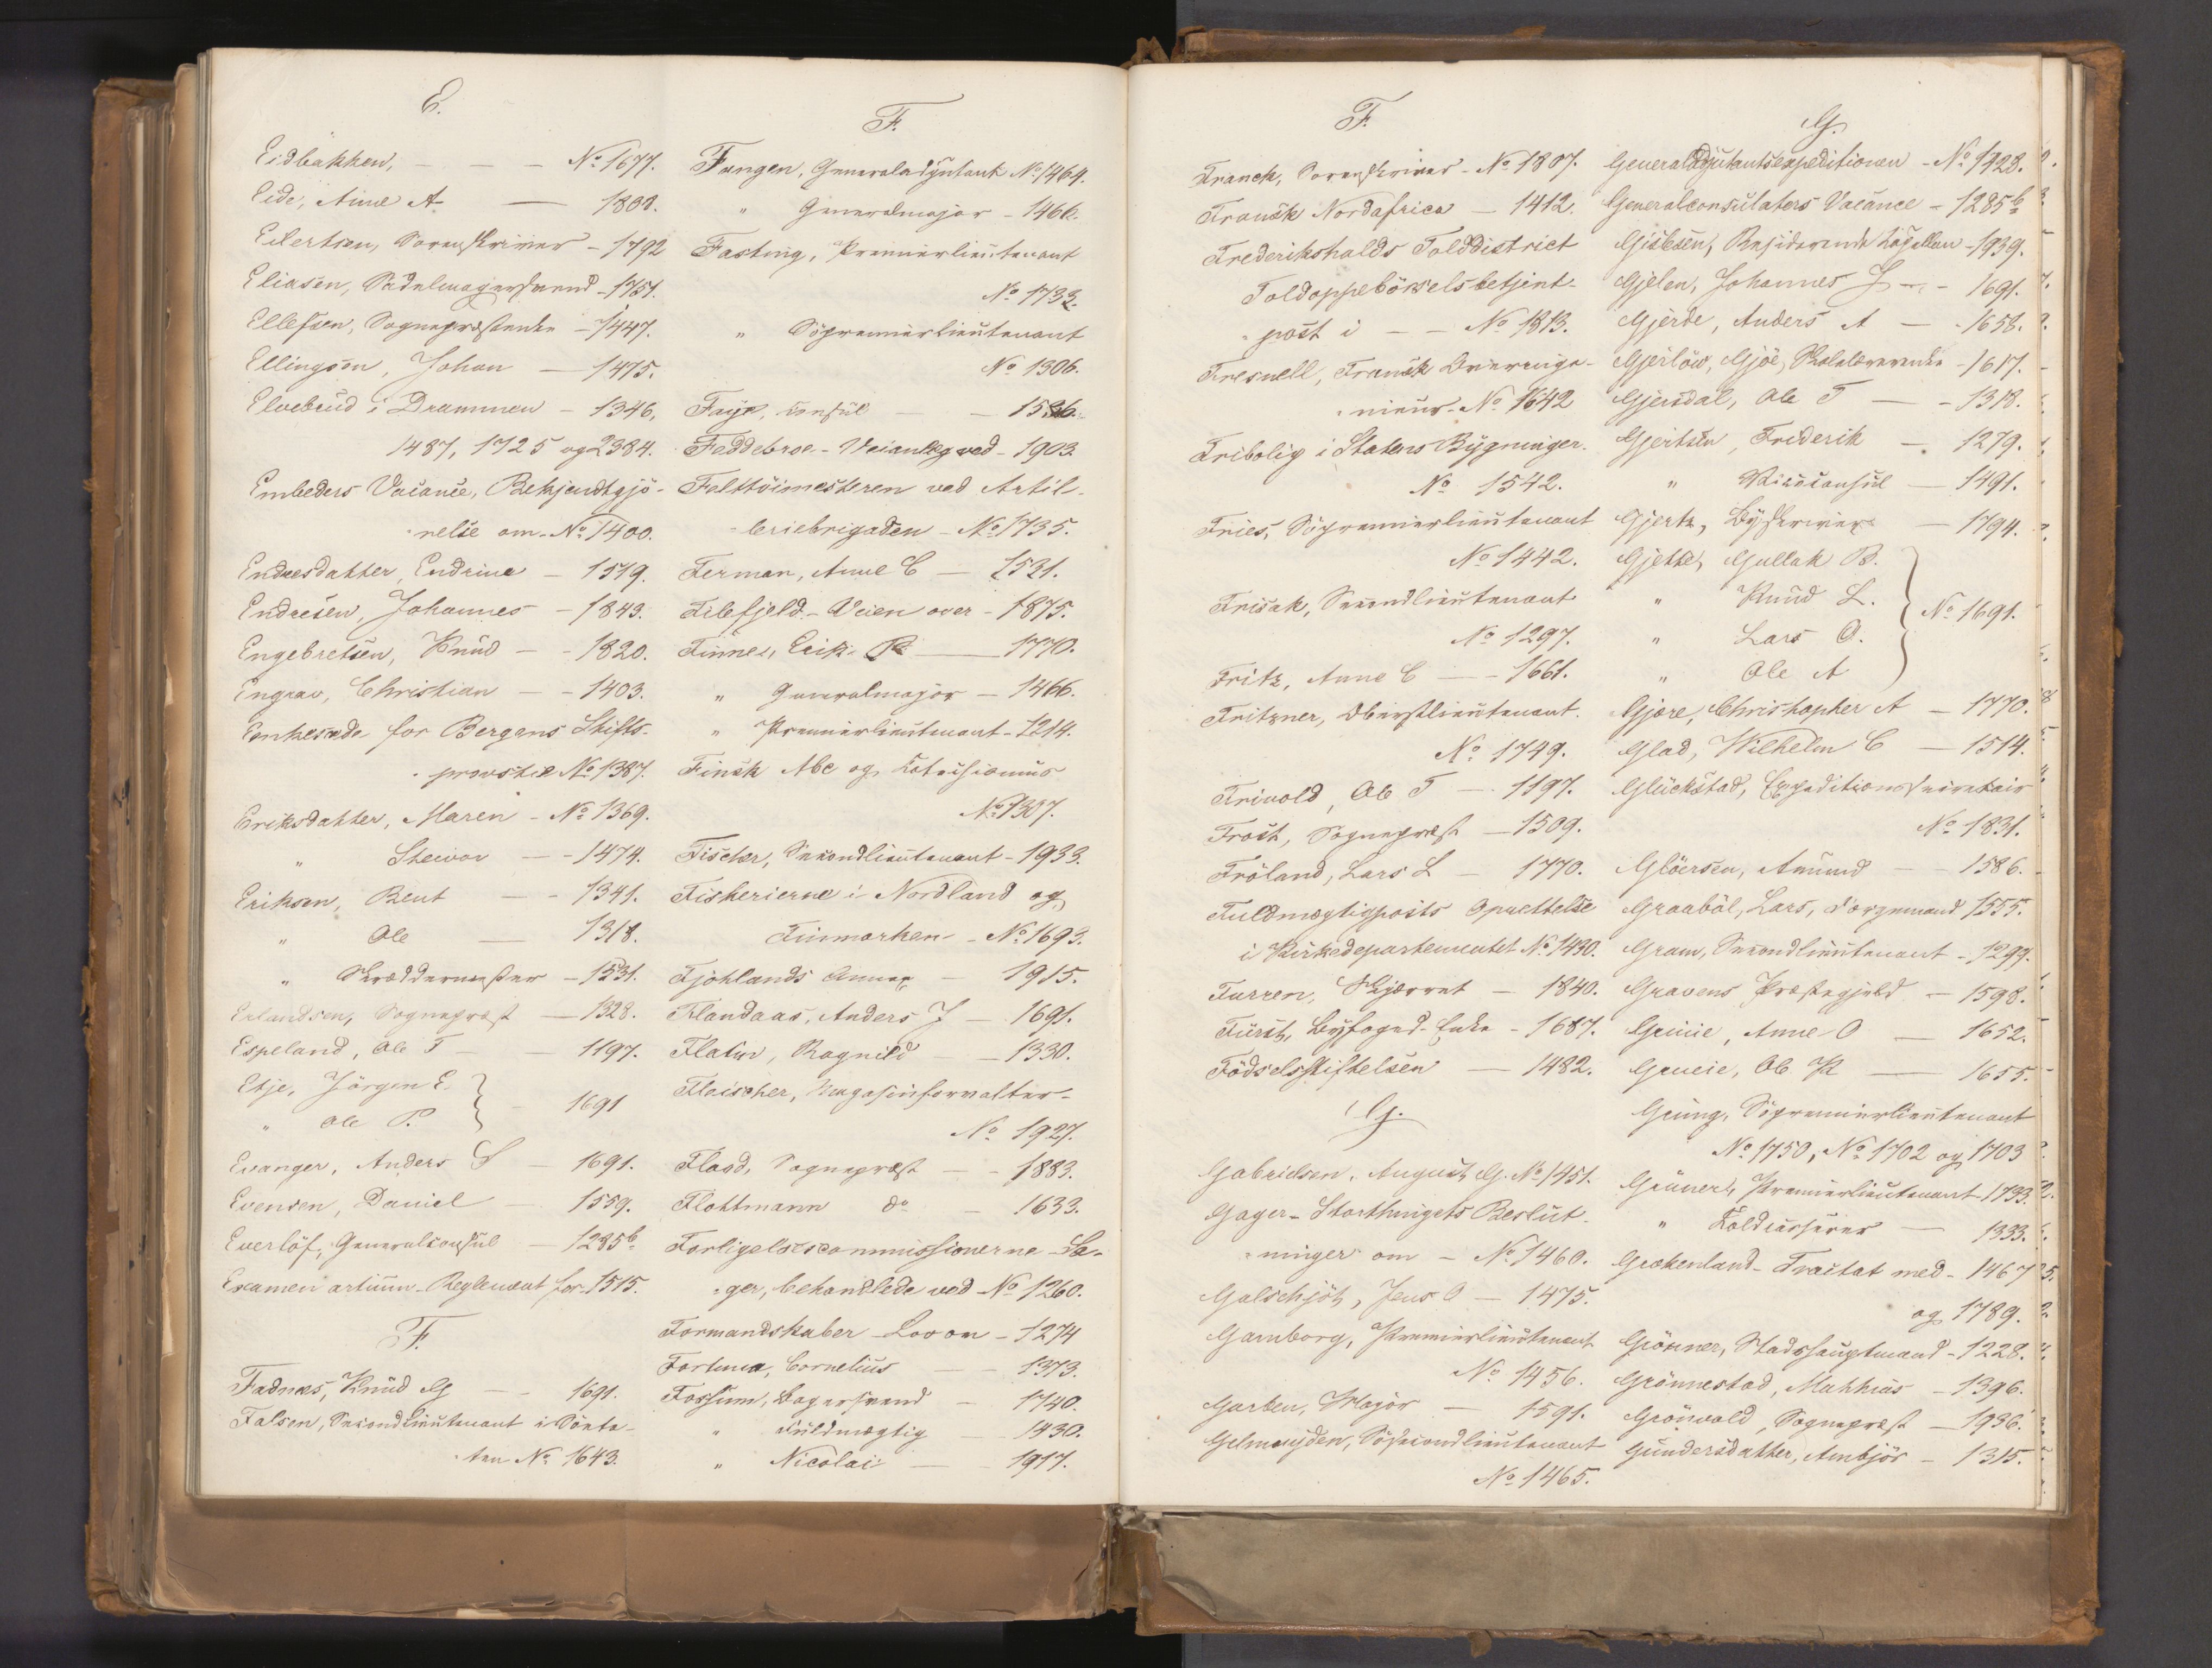 E.
Eidbakken, - - - No 1677.
Eide, Aine A - 1801.
Eilertsen, Sorenskriver - 1792
Eliasen, Sadelmagersvend - 1751.
Ellefsen, Sognepræstenke - 1447.
Ellingson, Johan - 1475.
Elvebrud i Drammen - 1346,
1487, 1725 og 2384.
Embeders Vacance, Bekjendtgjö-
relse om - No 1400.
Endresdatter, Endrine - 1519.
Endresen, Johannes - 1843.
Engebretsen, Knud - - 1820.
Engrav, Christian - - 1403.
Enkesæde for Bergens Stifts-
provstie No 1387.
Eriksdatter, Maren - No 1369.
" Steivor - - 1474.
Eriksen, Bent - - 1341.
" Ole - 1318.
" Skræddermester - 1531.
Erlandsen, Sognepræst - 1328.
Espeland, Ole T - - 1197.
Etje, Jörgen E. } - 1691
" Ole P. }
Evanger, Anders S - 1691.
Evensen, Daniel - 1559.
Everlöf, Generalconsul - 1285b
Examen artium - Reglement for - 1515.
F.
Fadnæs, Knud G - - 1691.
Falsen, Secondlieutenant i Söeta-
ten No 1643.
F.
Fangen, Generaladjutant No 1464.
" Generalmajor - 1466.
Fasting, Premierlieutenant
No 1733.
" Söpremierlieutenant
No 1306.
Faye, Consul - - 1536.
Feddebroe - Veianlæg ved - 1903.
Felttöimesteren ved Artil-
leriebrigaden - No 1735.
Ferman, Anne C - 1521.
Filefjeld - Veien over - 1875.
Finne, Erik P - 1770.
" Generalmajor - 1466.
" Premierlieutenant - 1214.
Finsk Abc og Katechismus
No 1307.
Fischer, Secondlieutenant - 1933.
Fiskerierne i Nordland og
Finmarken - No 1693.
Fjotlands Annex - 1915.
Flandaas, Anders J - 1691.
Flatin, Ragnild - 1330.
Fleischer, Magasinforvalter -
No 1927.
Flood, Sognepræst - - 1883.
Flottmann do - 1633.
Forligelsescommissionerne - Sa-
ger, behandlede ved No 1260.
Formandskaber - Lov om - 1274
Fortuna, Cornelius - 1373.
Fossum, Bagersvend - 1740.
" Fuldmægtig - 1430.
" Nicolai - 1917.
F.
Franck, Sorenskriver - No 1807.
Fransk Nordafrica - 1412.
Frederikshalds Tolddistrict
Toldoppebörselsbetjent-
post i - - No 1813.
Fresnell, Fransk Overinge-
nieur - No 1642
Fribolig i Statens Bygninger.
No 1542.
Fries, Söpremierlieutenant
No 1442.
Frisak, Secondlieutenant
No 1297.
Fritz, Anne C - - 1661.
Fritzner, Oberstlieutenant.
No 1749.
Frivold, Ole T - 1197.
Frost, Sognepræst - 1509.
Fröland, Lars L - 1770.
Fuldmægtigposts Oprettelse
i Kirkedepartementet No 1430.
Furren, Skjærret - 1840.
Fürst, Byfoged-Enke - 1687.
Födselsstiftelsen - 1482.
G.
Gabrielsen, August G. No 1451.
Gager - Storthingets Beslut-
ninger om - No 1460.
Galschjöt, Jens O - 1475.
Gamborg, Premierlieutenant
No 1456.
Garben, Major - 1591.
Gelmuyden, Sösecondlieutenant
No 1465.
G.
Generaladjutantsexpeditionen - No 1928.
Generalconsulaters Vacance - 1285b
Gislesen, Residerende Capellan - 1939.
Gjelen, Johannes J - - 1691.
Gjerde, Anders A - - 1658.
Gjerlöw, Gjöe, Skolelærerenke - 1617.
Gjersdal, Ole T - - 1318.
Gjertsen, Friderik - 1279.
" Viceconsul - 1491.
Gjertz, Byskriver - 1794.
Gjette, Gullak B. }
" Knud L. } No 1691.
" Lars O. }
" Ole A }
Gjøre, Christopher A - 1770.
Glad, Wilhelm C - 1514.
Glückstad, Expeditionssecretair
No 1831.
Glöersen, Amund - - 1586.
Graaböl, Lars, Dørgemand 1555.
Gram, Secondlieutenant - 1299.
Gravens Præstegjeld - 1598.
Greiiie, Anne O - 1652.
Grueie, Ole K - 1655.
Grüng, Söpremierlieutenant
No 1750, No 1702 og 1703
Grüner, Premierlieutenant 1733.
" Toldcasserer - 1333.
Grækenland - Tractat med - 1467
og 1789.
Grönner, Stadshauptmand - 1228.
Grönnestad, Mathias - 1396.
Grönvold, Sognepræst - 1936.
Gundersdatter, Ambjör - 1315.